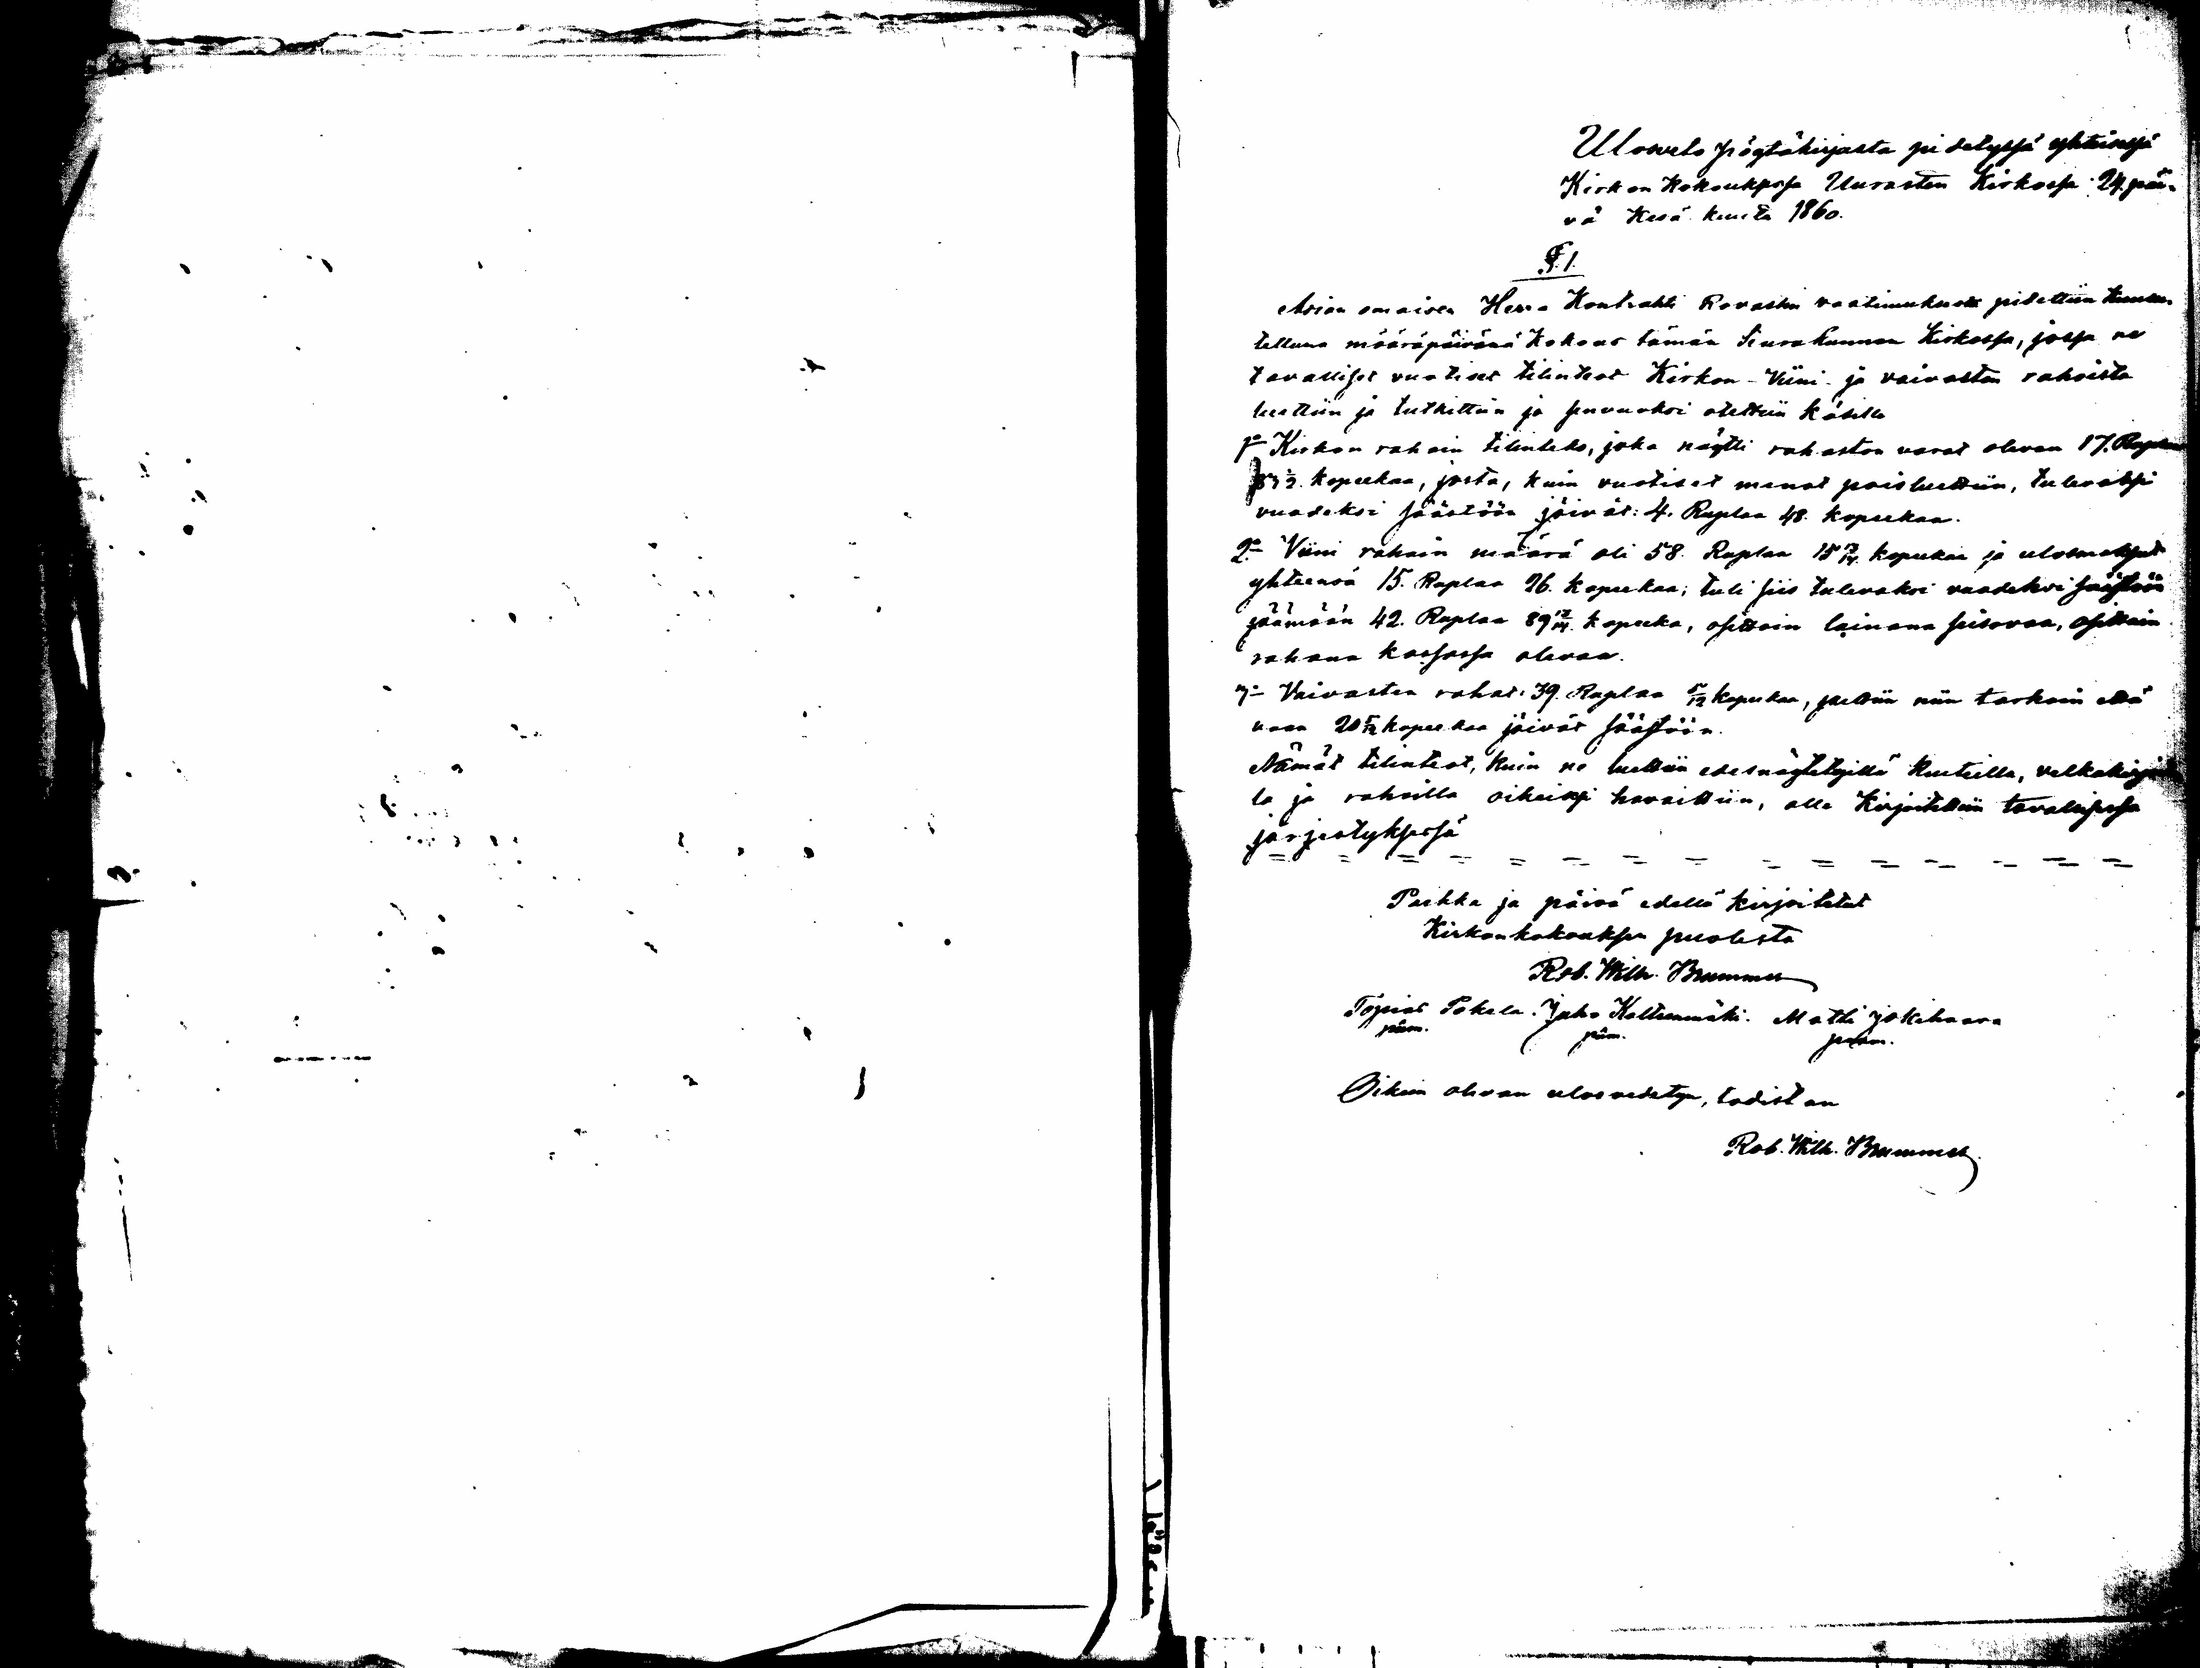 Ulosveto pöytäkirjasta pidetyssä yhteisessä
Kirkon Kokouksessa Uurasten Kirkossa 24. päi-
vä Kesä kuuta 1860.
§. 1.
Asian omaisen Herra Kontrahti Rovastin vaatimuksesta pidettiin Kuulu-
tettuna määräpäivänä Kokous tämän Seurakunnan Kirkossa, jossa ne
tavalliset vuotiset tilinteot Kirkon- Viini- ja vaivasten rahoista
luettiin ja tutkittiin ja otettiin käsille
1o Kirkon rahain tilinteko, joka näytti rahaston varat olevan 17. Ruplaa
kopeekaa, josta, kuin vuotiset menot poisluettiin, tulevaksi
vuodeksi säästöön jäivät: 4. Ruplaa 48. kopeekaa.
2o Viini rahain määrä oli 58. Ruplaa 15 kopeekaa ja ulosmaksut
yhteensä 15. Ruplaa 26. kopeekaa; tuli siis tulevaksi vuodeksi säästöön
jäämään 42. Ruplaa 89 kopeeka, osittain lainana seisovaa, osittain
rahana kassassa olevaa.
3o Vaivasten rahat: 39. Ruplaa 5/12 kopeekaa, jaettiin niin tarkoin että
vaan 20 5/12 kopeekaa jäivät säästöön.
Nämät tilinteot, kuin ne luettiin edesnäytetyillä kuiteilla, velkakirjoil-
la ja rahoilla oikeiksi havaittiin, alle kirjoitettiin tavallisessa
järjestyksessä
= = = = = = = = = = = = = = =
Paikka ja päivä edellä kirjoitetut
Kirkonkokouksen puolesta
Rob. Wilh. Brummer
Topias Tokela. Juho Koltinmäki. Matti Jokihaara
pum. pum. pum.
Oikein olevan ulosvedetyn, todistan
Rob. Wilh. Brummer